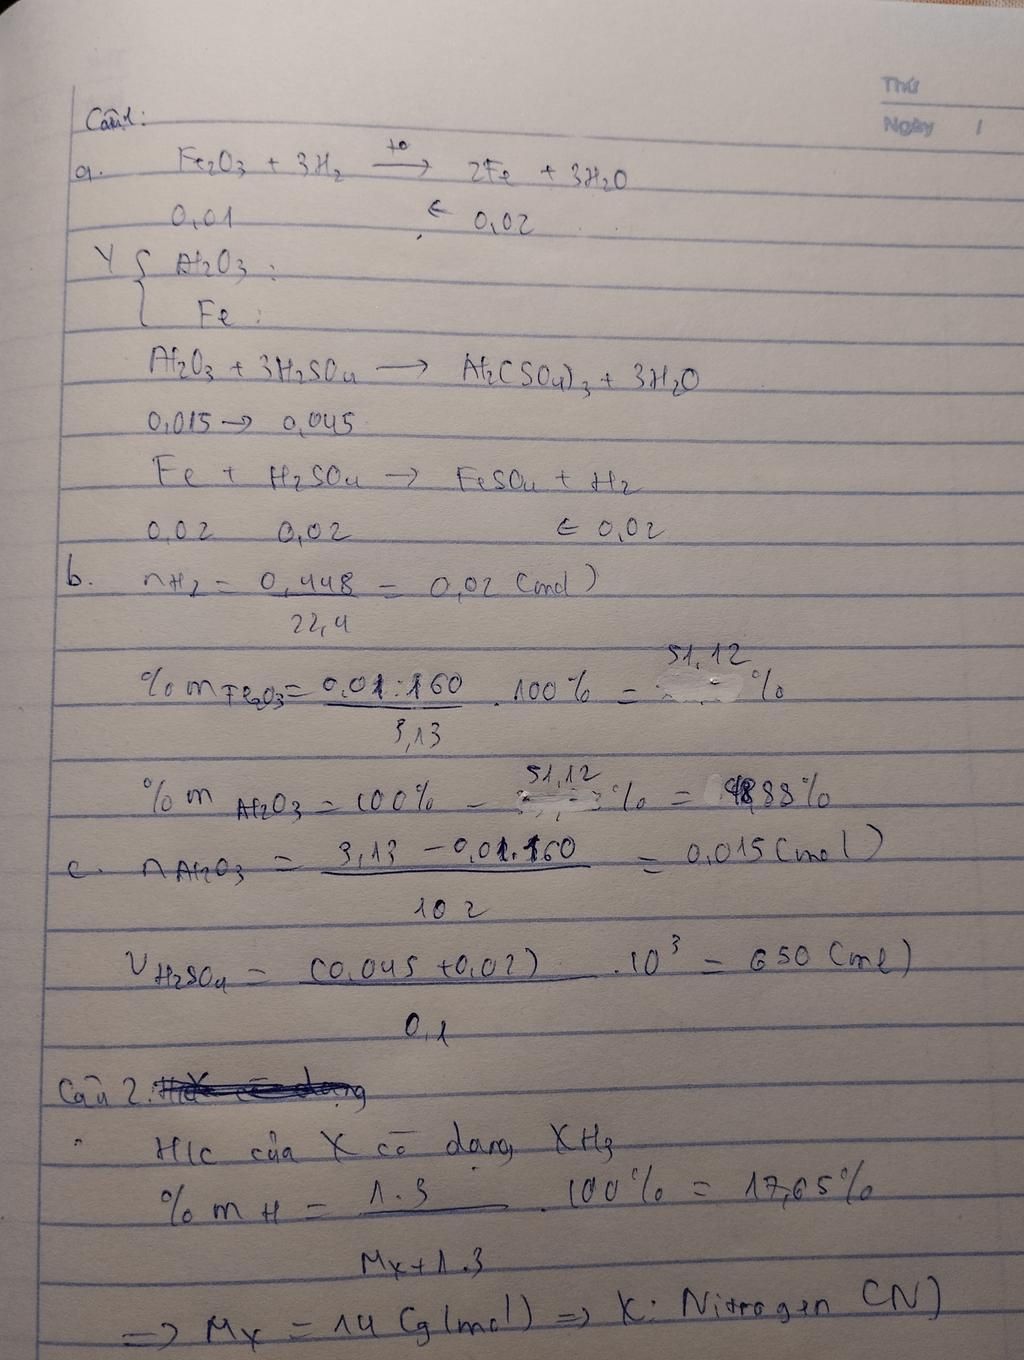 Thứ
Ngày /
Câu 1:
a. Fe2O3 + 3H2 t° → 2Fe + 3H2O
0,01 ← 0,02
Y { Al2O3 :
Fe :
Al2O3 + 3H2SO4 → Al2(SO4)3 + 3H2O
0,015 → 0,045
Fe + H2SO4 → FeSO4 + H2
0,02 0,02 ← 0,02
b. nH2 = 0,448 / 22,4 = 0,02 (mol)
% m Fe2O3 = 0,01.160 / 3,13 . 100% = 51,12 %
% m Al2O3 = 100% - 51,12 % = 48,88%
c. nAl2O3 = 3,13 - 0,01.160 / 102 = 0,015 (mol)
V H2SO4 = (0,045 + 0,02) / 0,1 . 10³ = 650 (ml)
Câu 2.
H/c của X có dạng XH3
% m H = 1.3 / Mx + 1.3 . 100% = 17,65%
=> Mx = 14 (g/mol) => X: Nitrogen (N)